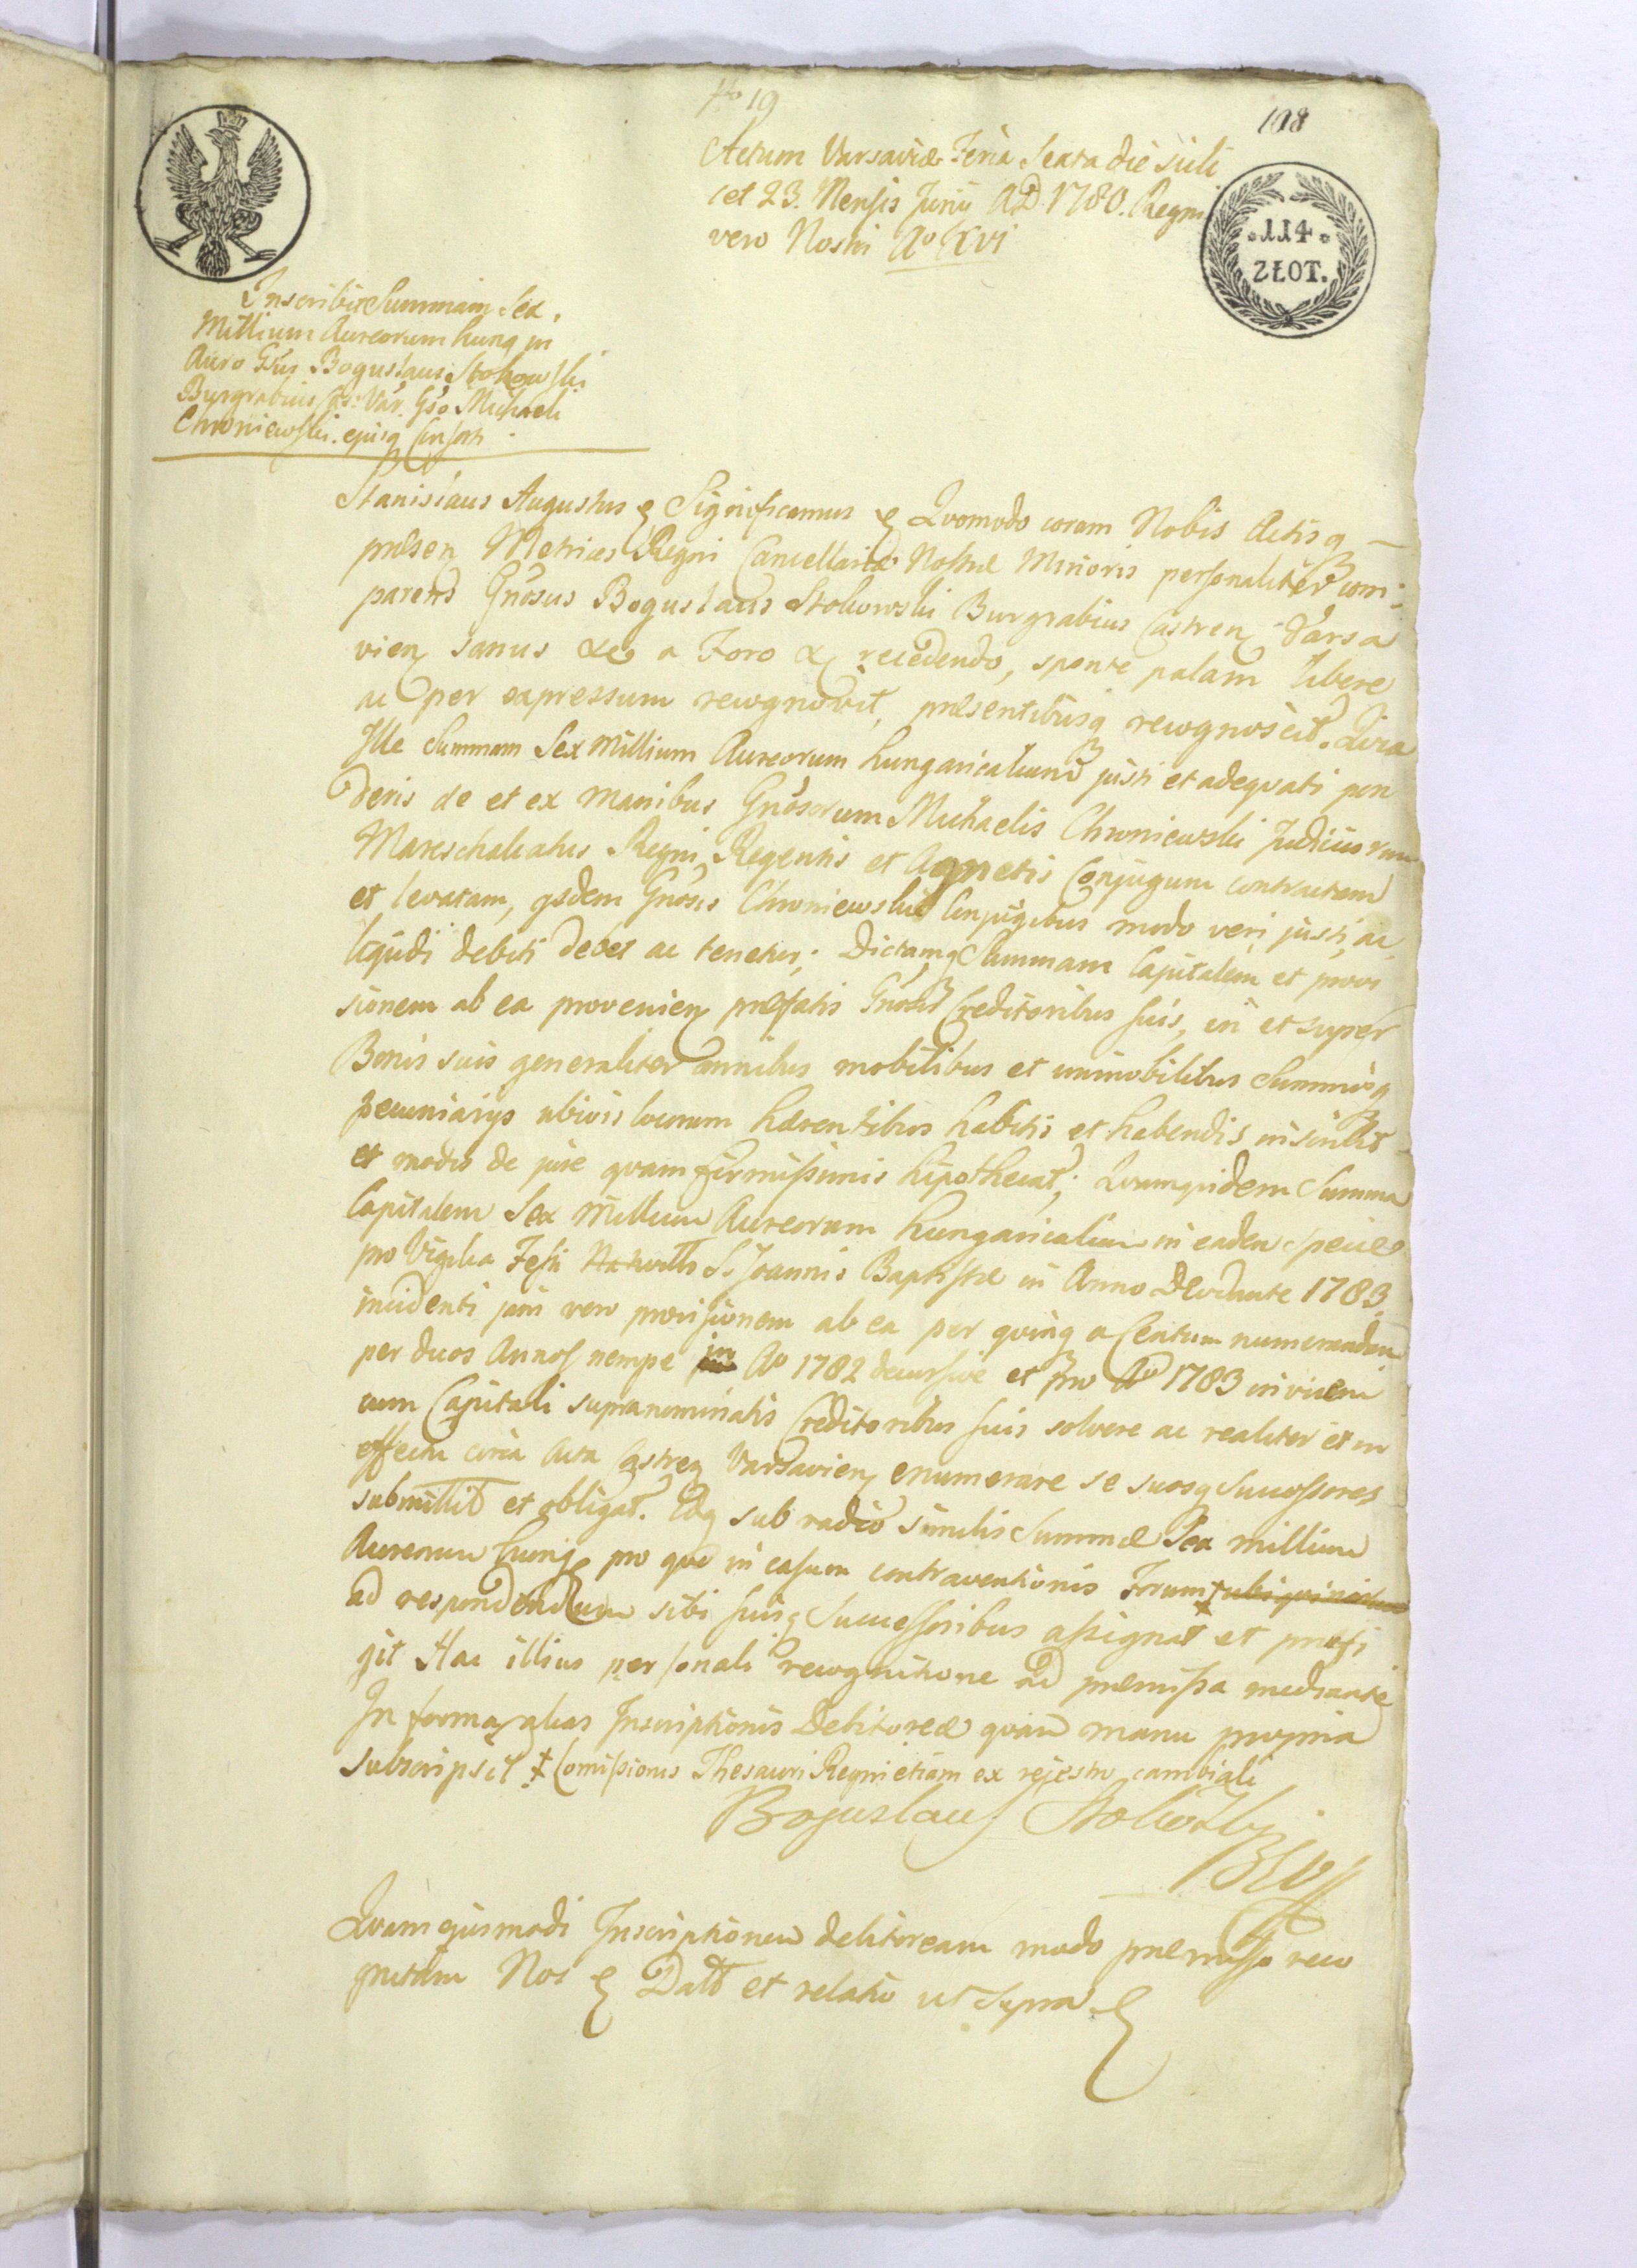 No 19
108
Actum Varsaviæ Feria Sexta die scili
cet 23. Mensis Junii A.D. 1780. Regni
vero Nostri Ao XVI
.114.
ZŁOT.
Inscribit Summam Sex
Millium Aureorum hung in
Auro Gsus Boguslaus Stokowski
Burgrabius Cas: Var. Gso Michaeli
Chroniewski ejusq Consorti
Stanislaus Augustus & Significamus & Quomodo coram Nobis Actisq
præsen Metrices Regni Cancellariæ Nostræ Minoris personaliter com
parens Gnosus Boguslaus Stokowski Burgrabius Castren Varsa
vien sanus &c a Foro & recedendo, sponte palam libere
ac per expressum recognovit, præsentibusq recognoscit. Quia
Ille Summam Sex Millium Aureorum hungaricalium justi et adeqvati pon
deris de et ex manibus Gnosorum Michaelis Chroniewski Judiciorum
Mareschalcatus Regni Regentis et Agnetis Conjugum contractam
et levatam, qsdem Gnosis Chroniewskie Conjugibus modo veri justi, ac
liqvidi debiti debet ac tenetur; Dictamq Summam Capitalem et provi
sionem ab ea provenien præfatis Gnosis Creditoribus suis, in et super
Bonis suis generaliter omnibus mobilibus et immobilibus Summisq
pecuniarijs ubivis locorum hærentibus habitis et habendis inscribit
et modis de jure qvam firmissimis hipothecat; Quamqvidem Summam
Capitalem Sex Millium Aureorum hungaricalium in eadem specie
pro Vigilia Festi S. Joannis Baptistæ in Anno Deodante 1783
incidenti jam vero provisionem ab ea per qvinq a Centum numerandam
per duos Annos nempe in Ao 1782 decursive et pro Ao 1783 invicem
cum Capitali supranominatis Creditoribus suis solvere ac realiter et in
effectu circa Acta Castren Varsavien enumerare se suosq Successores
submittit et obligat. Idq sub vadio similis Summæ Sex millium
Aureorum hung pro quo in casum contraventionis Forum +
ad respondendum sibi suisq Successoribus assignat et præfi
git Hac illius personali recognitione ad præmissa mediante
In forma alias Inscriptionis Debitoreæ qvam manu propria
subscripsit + Comissionis Thesauri Regni etiam ex rejestro cambiali
Boguslaus Stokowski
BCV
Quam ejusmodi Inscriptionem debitoream modo præmisso reco
gnitam Nos & Datt et relatio ut supra